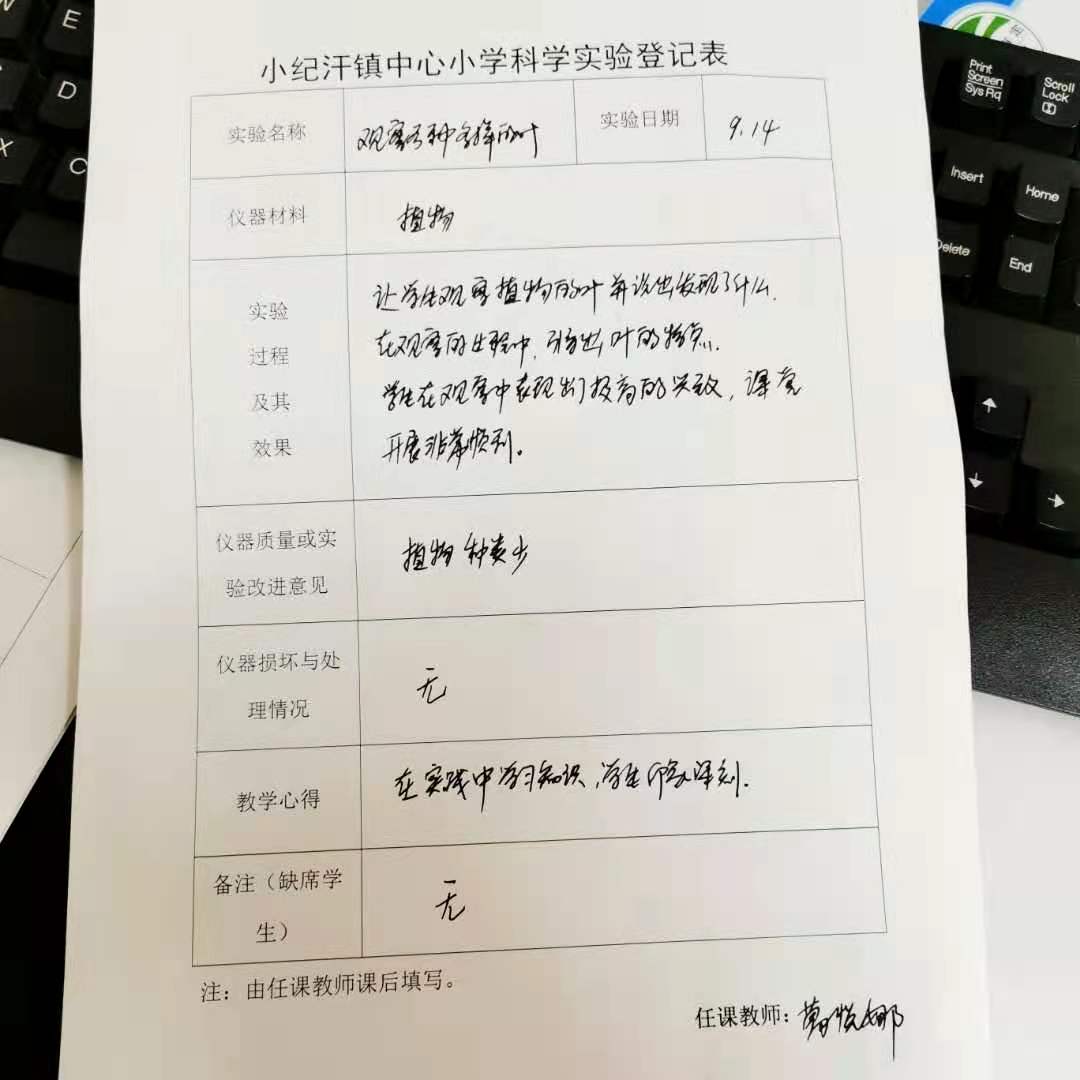 小纪汗镇中心小学科学实验登记表
实验名称 观察各种各样的叶 实验日期 9.14
仪器材料 植物
实验过程及其效果
让学生观察植物的叶并说出发现了什么.
在观察的过程中,引出叶的特点.
学生在观察中表现出了极高的兴致,课堂
开展非常顺利。
仪器质量或实验改进意见 植物种类少
仪器损坏与处理情况 无
教学心得 在实践中学习知识,学生印象深刻.
备注(缺席学生) 无
注:由任课教师课后填写。
任课教师:
W
E
D
X
C
Print Screen SysRq
Scroll Lock
Insert
Home
Delete
End